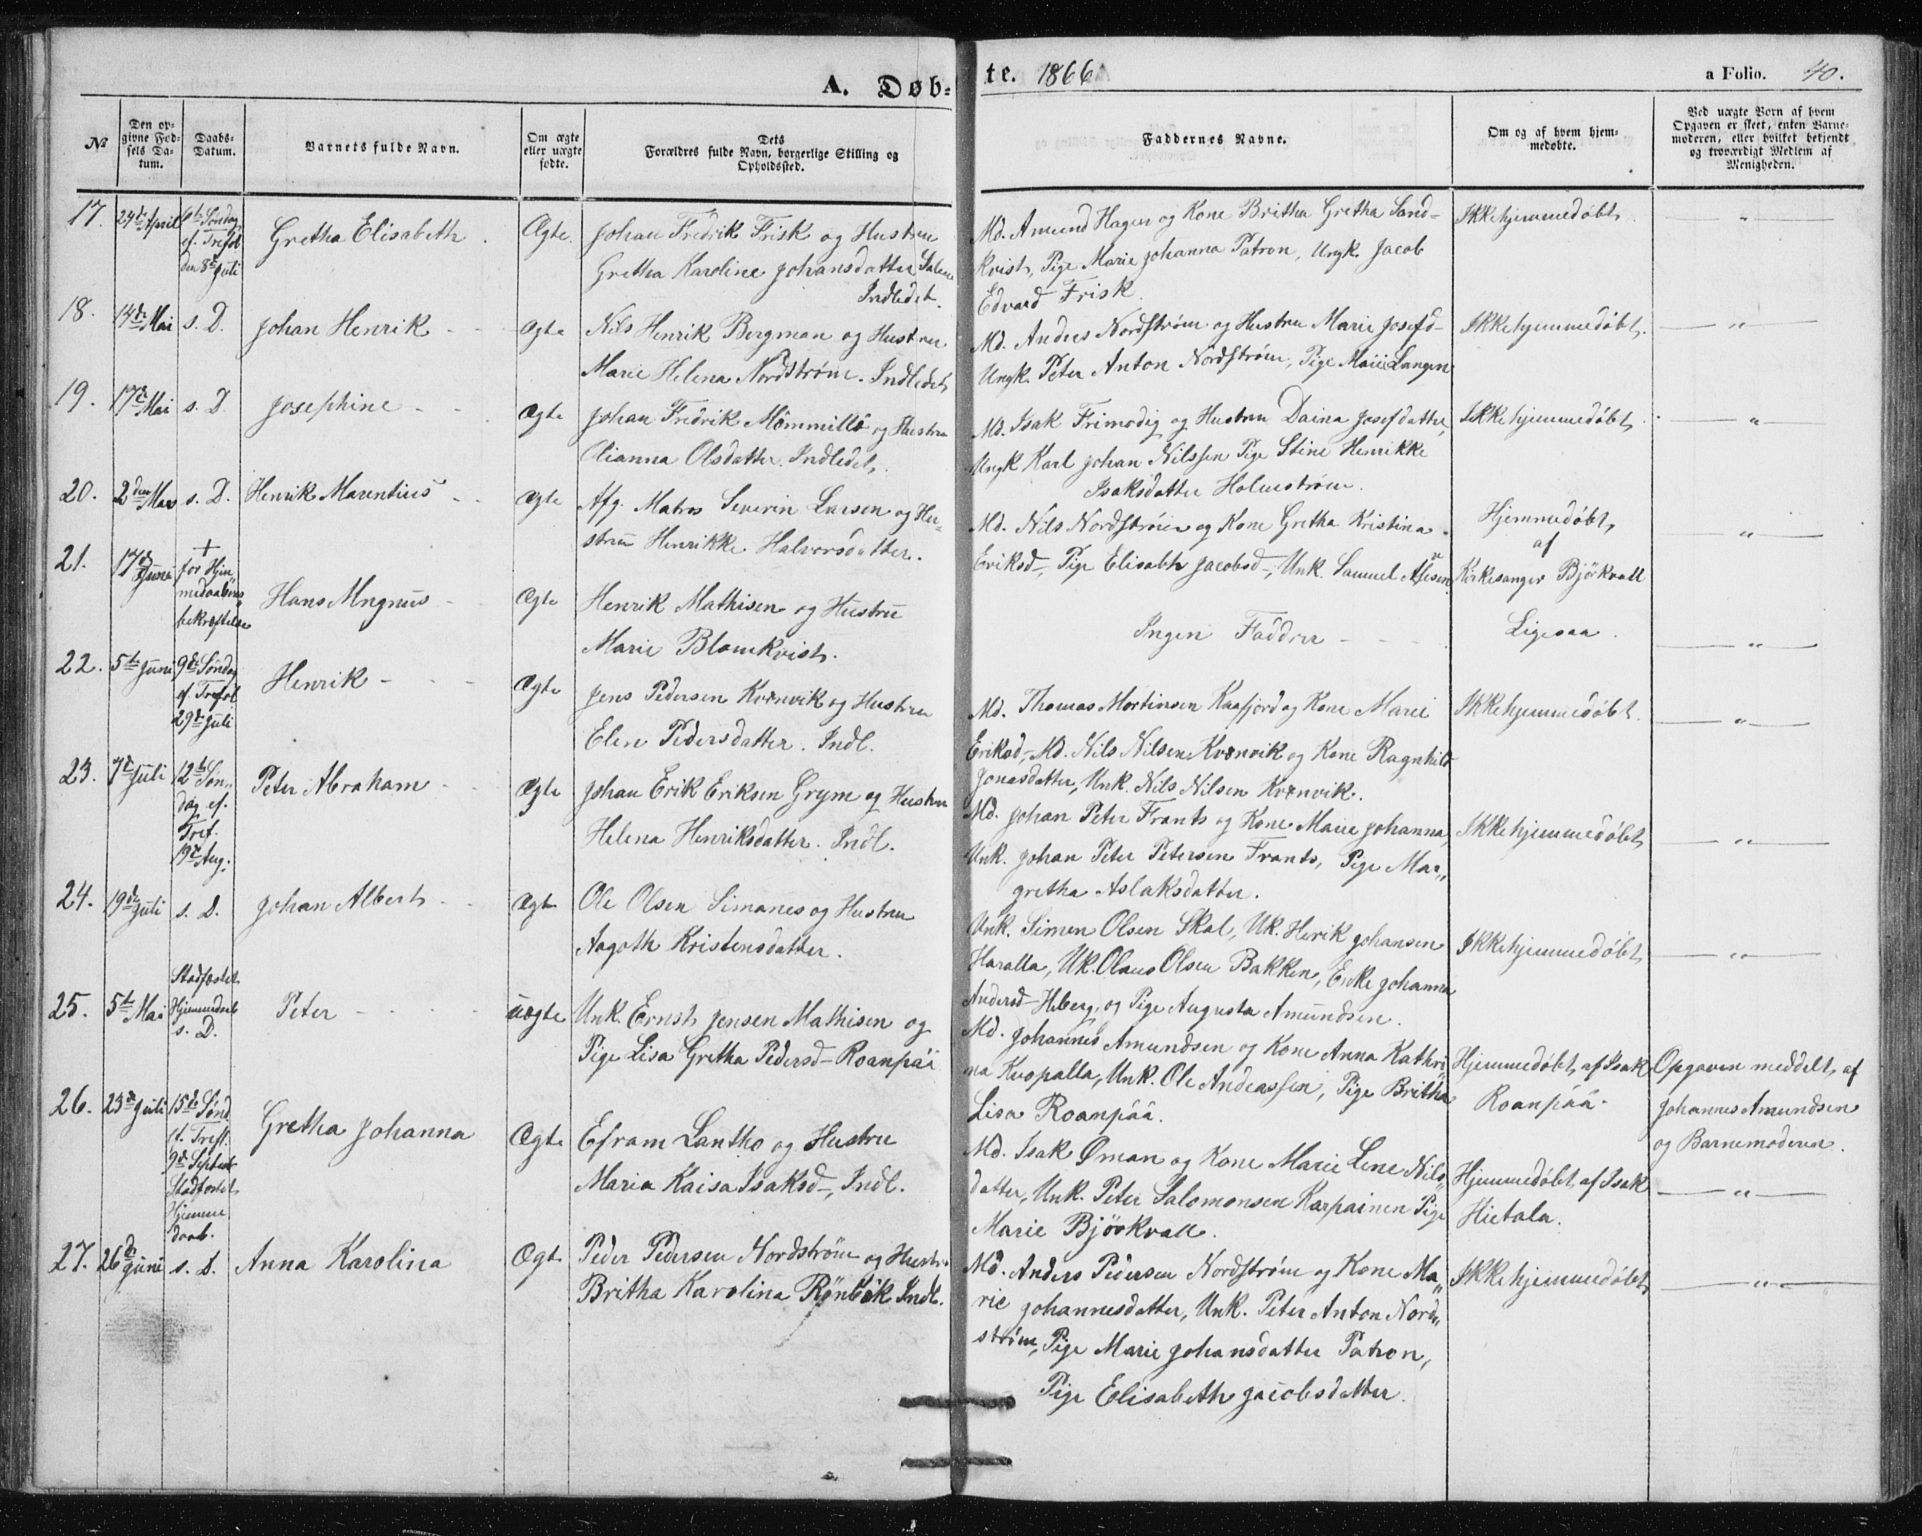 A. Døb-
te. 1866
a Folio. 40.
№
Den op-
givne Fød-
sels Da-
tum.
Daabs-
Datum.
Barnets fulde Navn.
Om ægte
eller uægte
fødte.
Dets
Forældres fulde Navn, borgerlige Stilling og
Opholdssted.
Faddernes Navne.
Om og af hvem hjem-
medøbte.
Ved uægte Børn af hvem
Opgaven er skeet, enten Barne-
moderen, eller hvilket bekjendt
og troværdigt Medlem af
Menigheden.
17. 24de April
6te Søndag
ef. Trefol
den 8de Juli
Gretha Elisabeth
Ægte
Johan Fredrik Frisk og Hustru
Gretha Karoline Johansdatter
Indledet.
Md. Amund Hagen og Kone Britha Gretha Sand-
kvist, Pige Marie Johanna Patron, Ungk. Jacob
Edvard Frisk.
Ikke hjemmedøbt
18. 14de Mai s. D. Johan Henrik Ægte
Nils Henrik Bergman og Hustru
Marie Helena Nordstrøm. Indledet
Md. Anders Nordstrøm og Hustru Marie Josefd-
Ungk. Peter Anton Nordstrøm, Pige Marie Langen
Ikke hjemmedøbt.
19. 17de Mai s. D. Josephine Ægte
Johan Fredrik Mömmillö og Hustru
Olianna Olsdatter. Indledet.
Md. Isak Frimodig og Hustru Daina Josefdatter,
Ungk Karl Johan Nilssen Pige Stine Henrikke
Isaksdatter Holmstrøm.
Ikke hjemmedøbt
20. 2den Mar s. D. Henrik Marentius Ægte
Afg. Matros Severin Larsen og Hu-
stru Henrikke Halvorsdatter.
Md. Nils Nordstrøm og Kone Gretha Kristina
Eriksd-, Pige Elisabth Jacobsd-, Unk. Samuel
Hjemmedøbt
af
Kirkesanger Björkvall
21. 17de Juni
+
for Hjem
medaabens
bekræftelse
Hans Mngnus
Ægte
Henrik Mathisen og Hustru
Marie Blomkvist.
Ingen Faddrer
Ligesaa.
22. 5te Juni
9de Søndag
ef. Trefol
29de Juli
Henrik
Ægte
Jens Pedersen Kvænvik og Hustru
Elen Pedersdatter. Indl.
Md. Thomas Mortinsen Kaafjord og Kone Marie
Eriksd-, Md. Nils Nilsen Kvænvik og Kone Ragnhild
Jonasdatter, Unk. Nils Nilsen Kvænvik.
Ikke hjemmedøbt.
23. 7de Juli
12te Søn„
dag ef.
Tref.
19de Aug.
Peter Abraham
Ægte
Johan Erik Eriksen Grym og Hustru
Helena Henriksdatter. Indl.
Md. Johan Peter Frants og Kone Marie Johanna,
Unk. Johan Peter Petersen Frants, Pige Mar„
gretha Aslaksdatter.
Ikke hjemmedøbt
24. 19de Juli s. D. Johan Albert Ægte
Ole Olsen Simanes og Hustru
Aagoth Kristensdatter.
Unk. Simen Olsen Skal, Uk. Herik Johansen
Haralla, Uk. Olaus Olsen Bakken, Enke Johanna
Andersd- Heberg, og Pige Augusta Amundsen.
Ikke hjemmedøbt
25. 5te Mai
Stadfæstet
Hjemmedaab
s. D.
Peter
uægte
Unk. Ernst Jensen Mathisen og
Pige Lisa Gretha Pedersd- Roanpää
Md. Johannes Amundsen og Kone Anna Kathri
na Kuopalla, Unk. Ole Andreassen, Pige Britha
Lisa Roanpää.
Hjemmedøbt af Isak
Roanpää.
Opgaven meddelt af
Johannes Amundsen
og Barnemoderen.
26. 23de Juli
15de Sønd
ef. Tref.
9de Septembr
Stadfæstet
Hjemme
daab.
Gretha Johanna
Ægte
Efram Lantho og Hustru
Maria Kaisa Isaksd-, Indl.
Md. Isak Øman og Kone Marie Lene Nils„
datter, Unk. Peter Salomonsen Karpainen Pige
Marie Björkvall.
Hjemmedøbt af Isak
Hietala.
27. 26de Juni s. D. Anna Karolina Ægte
Peder Pedersen Nordstrøm og Hustr.
Britha Karolina Rönbäk Indl.
Md. Anders Pedersen Nordstrøm og Kone Ma„
rie Johannesdatter, Unk. Peter Anton Nord„
strøm, Pige Marie Johansdatter Patron,
Pige Elisabeth Jacobsdatter.
Ikke hjemmedøbt